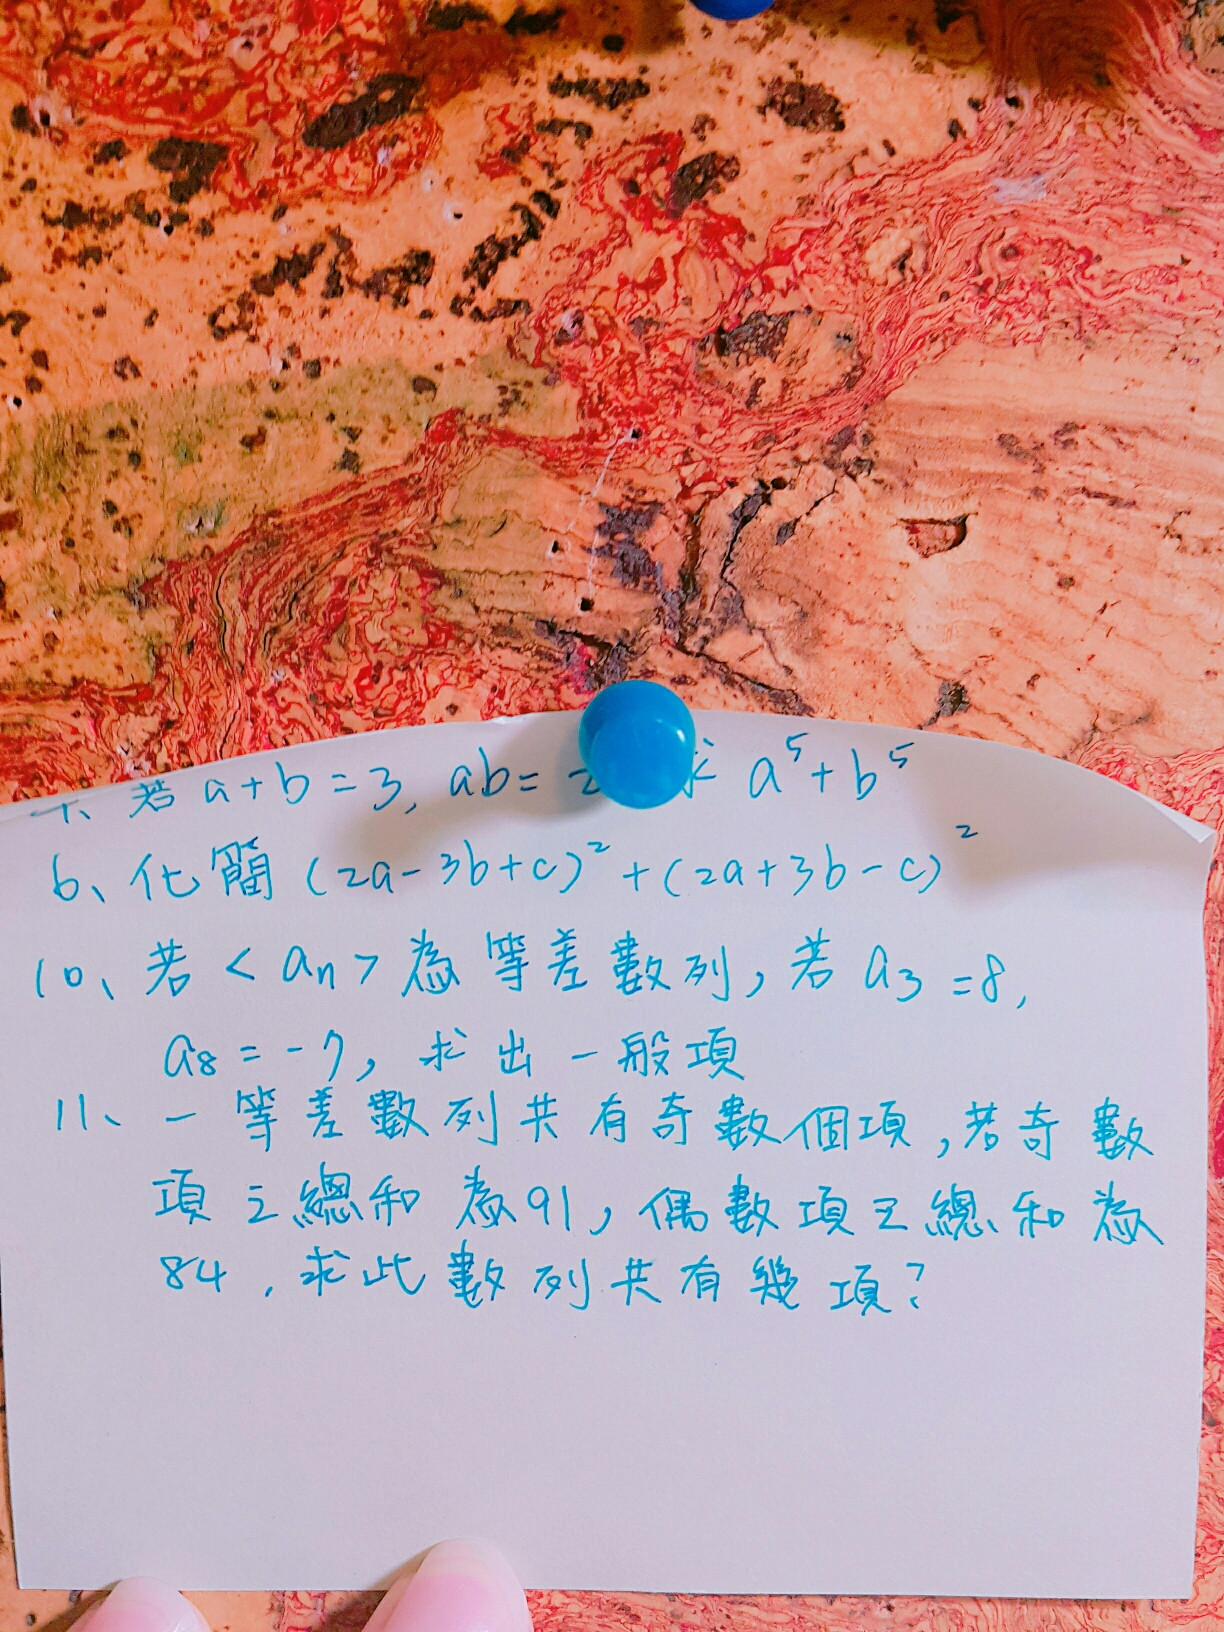 若 a+b=3, ab=2 求 a⁵+b⁵
6、化簡 (2a-3b+c)²+(2a+3b-c)²
10、若<an>為等差數列,若 a₃=8,
a₈=-7,求出一般項
11、一等差數列共有奇數個項,若奇數
項之總和為91,偶數項之總和為
84,求此數列共有幾項?